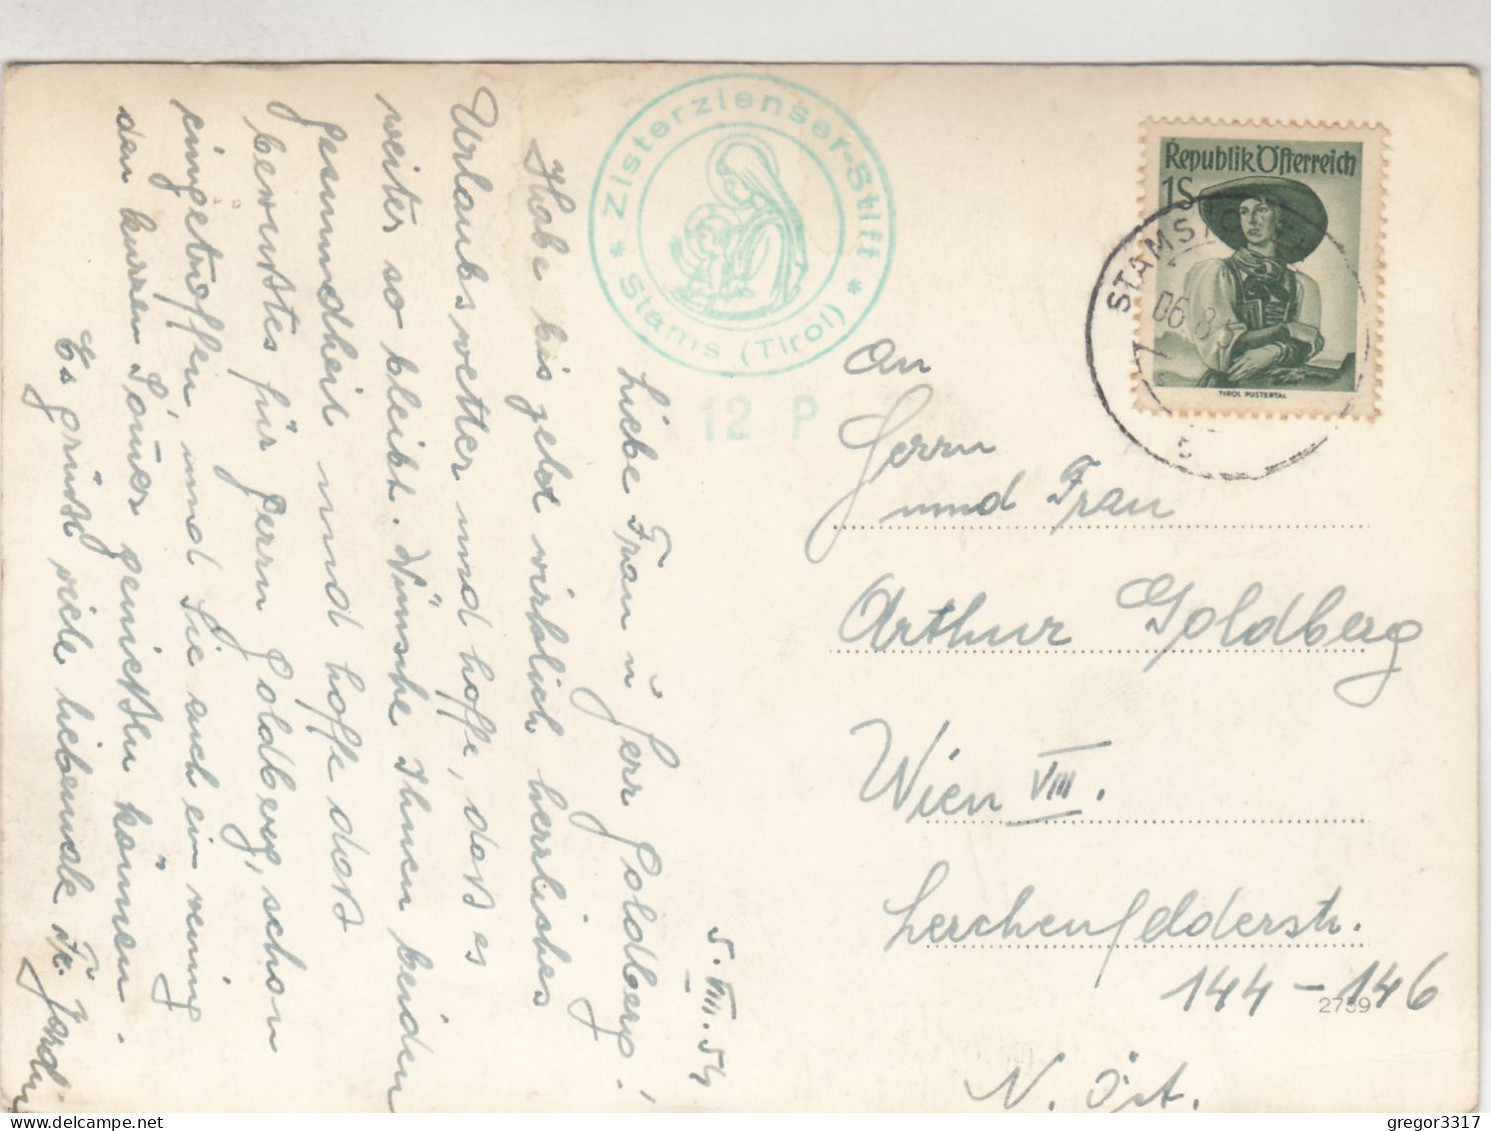 5. VIII. 54
Liebe Frau u Herr Goldberg!
Habe bis jetzt wirklich herrliches
Urlaubswetter und hoffe, dass es
weiter so bleibt. Wünsche Ihnen beiden
Gesundheit und hoffe dass
bewusstes für Herrn Goldberg, schon
eingetroffen, und Sie auch ein wenig
den kurzen Somer geniessen können.
Es grüsst viele liebemale Fr.
* Zisterzienser-Stift *
Stams (Tirol)
12 P
Republik Österreich
1S
TIROL PUSTERTAL
STAMS
06.8.5
An
Herrn
und Frau
Arthur Goldberg
Wien VIII.
Lerchenfelderstr.
144-146
2759
N. Öst.
gregor3317